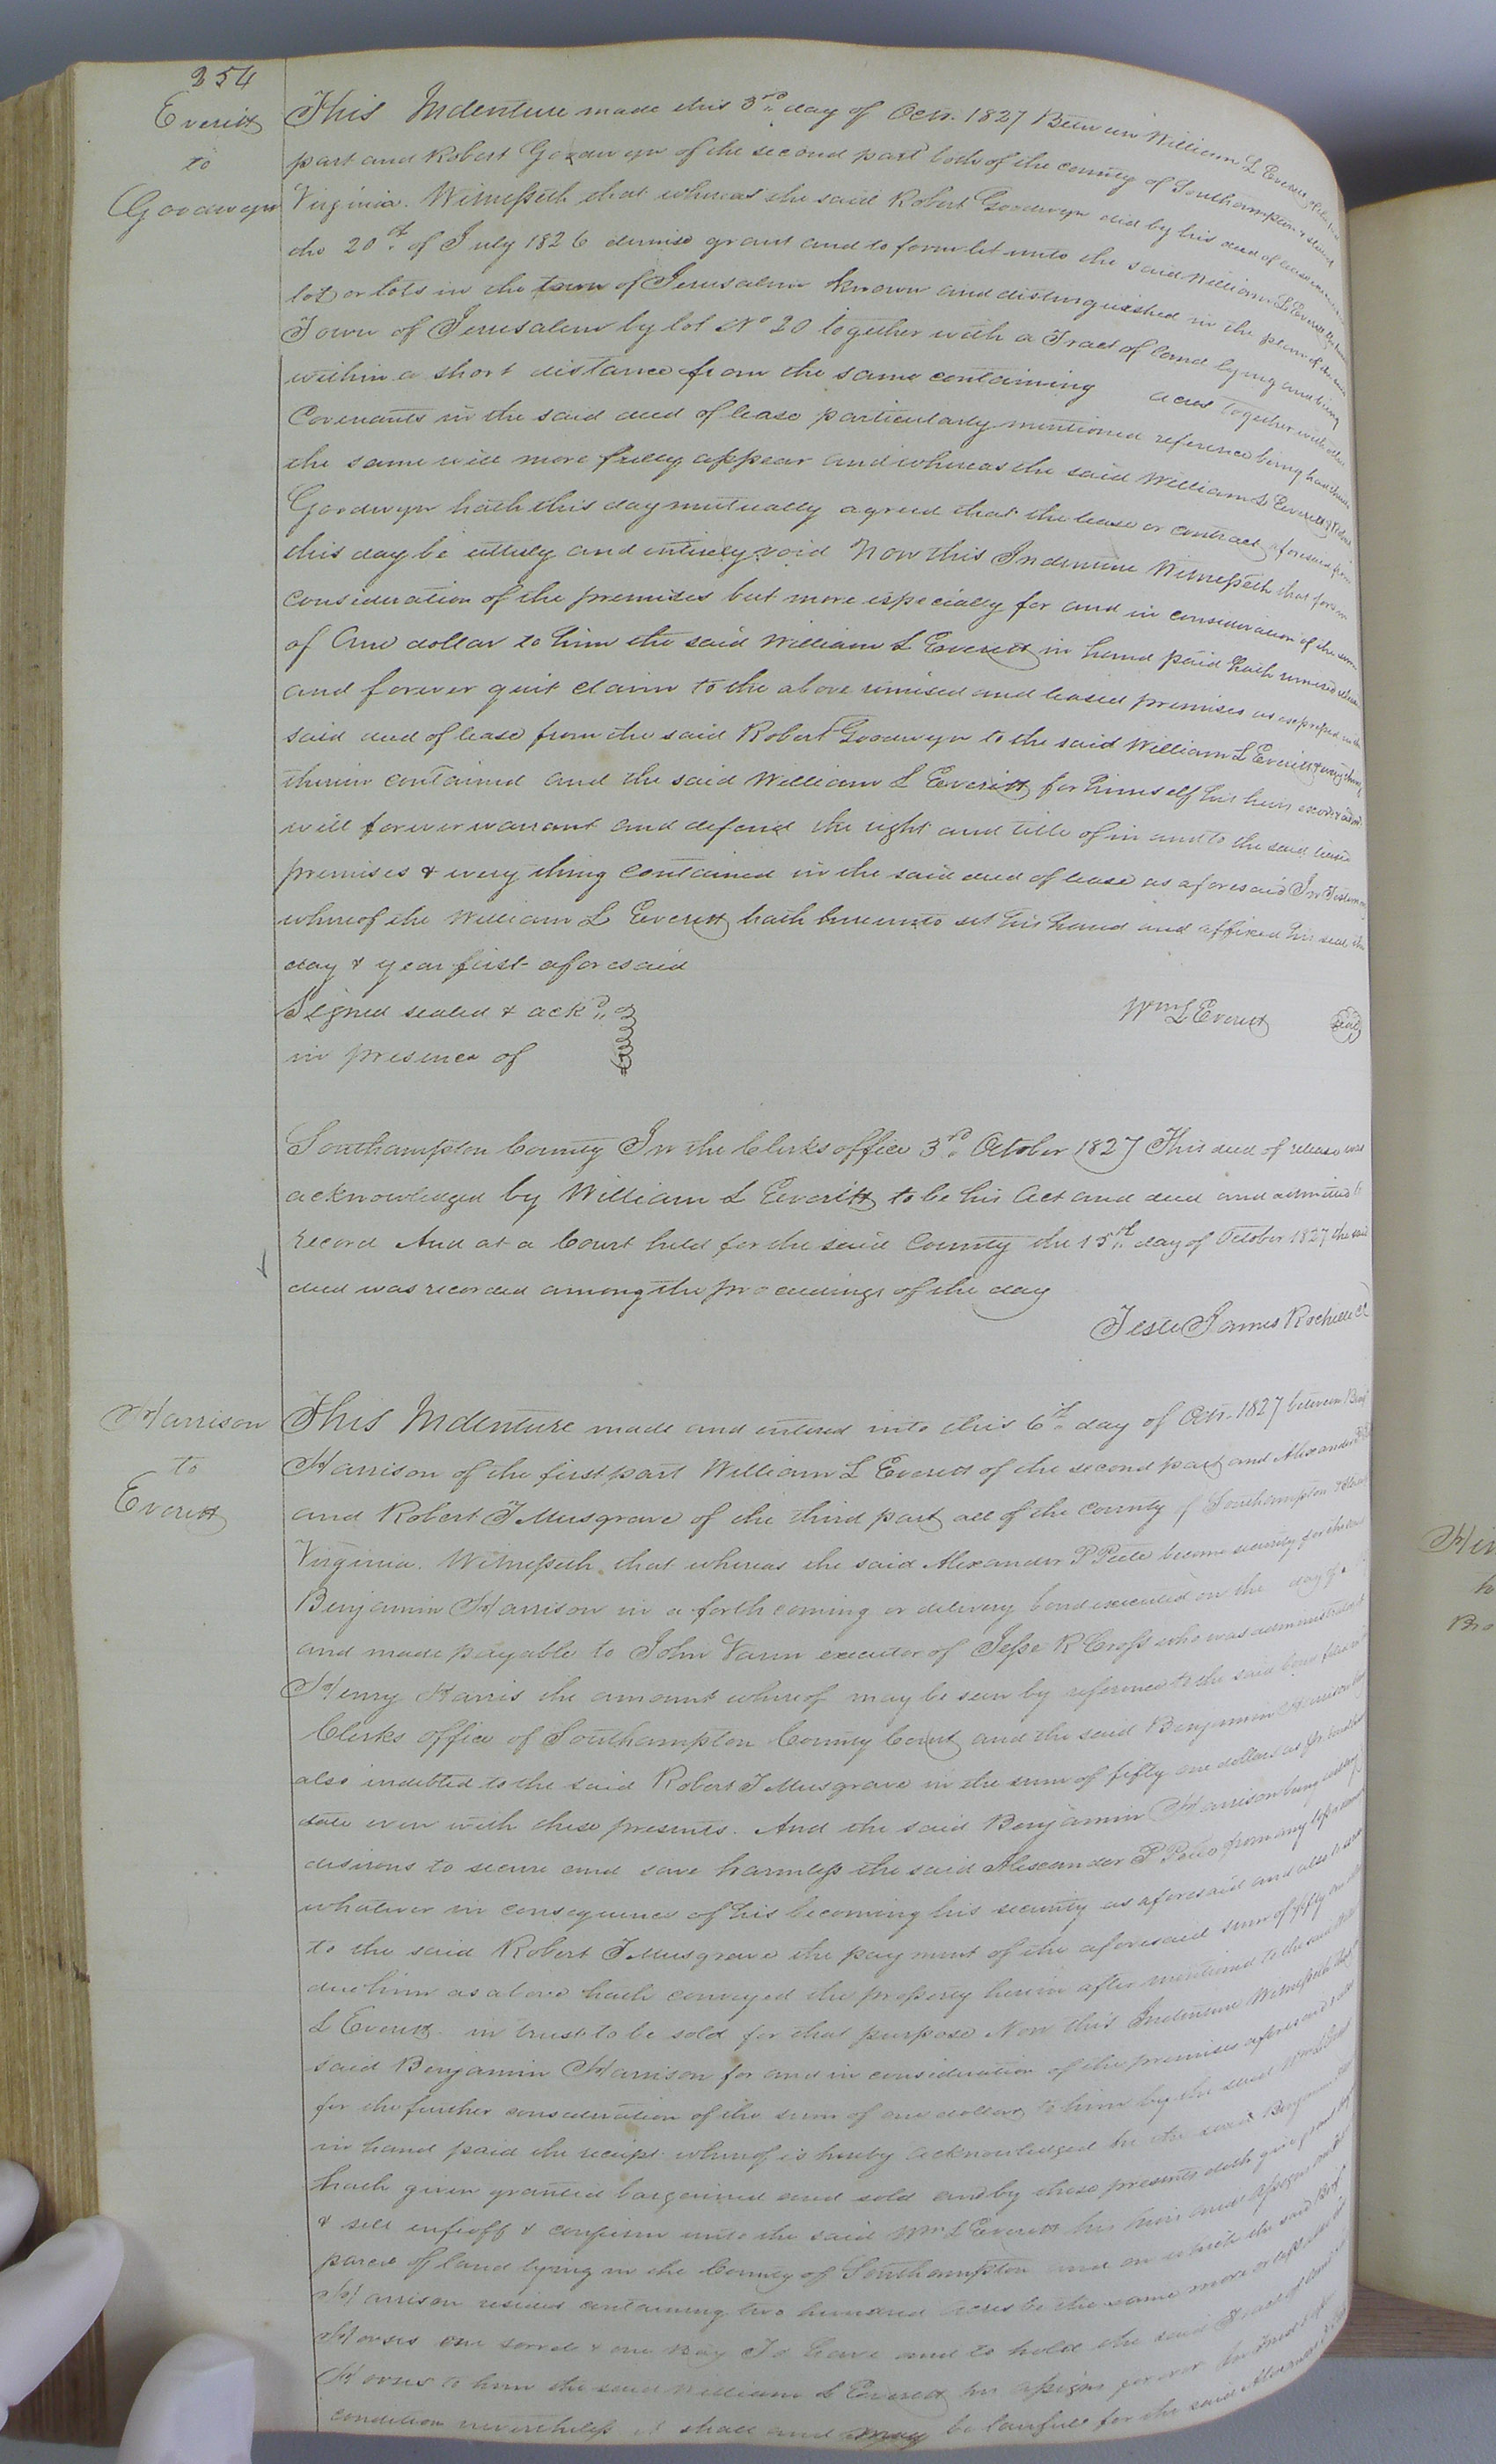 254
Everitt
to
Goodwyn
This Indenture made this 3rd day of Octr. 1827 Between William L Everitt of the first
part and Robert Goodwyn of the second part both of the county of Southampton & state of
Virginia. Witnesseth that whereas the said Robert Goodwyn did by his deed of lease
the 20th of July 1826 demise grant and to farm let unto the said William L Everitt
lot or lots in the town of Jerusalem known and distinguished in the plan of the said
Town of Jerusalem by lot No 20 together with a Tract of land lying and being
within a short distance from the same containing acres together with other
Covenants in the said deed of lease particularly mentioned reference being had thereto
the same will more fully appear and whereas the said William L Everitt & Robert
Goodwyn hath this day mutually agreed that the lease or contract aforesaid from
this day be utterly and entirely void Now this Indenture Witnesseth that for & in
consideration of the premises but more especially for and in consideration of the sum
of One dollar to him the said William L Everitt in hand paid hath remised release
and forever quit claim to the above remised and leased premises as expressed in the
said deed of lease from the said Robert Goodwyn to the said William L Everitt & every thing
therein contained and the said William L Everitt for himself his heirs exors & admrs
will forever warrant and defend the right and title of in and to the said leased
premises & every thing contained in the said deed of lease as aforesaid In Testimony
whereof the William L Everitt hath hereunto set his hand and affixed his seal the
day & year first aforesaid
Signed sealed & ackd
in presence of
Wm L Everitt seal
Southampton County In the Clerks office 3rd October 1827 This deed of release was
acknowledged by William L Everitt to be his Act and deed and admitted to
record And at a Court held for the said County the 15th day of October 1827 the said
deed was recorded among the proceedings of the day
Teste James Rochelle Cl
Harrison
to
Everitt
This Indenture made and entered into this 6th day of Octr. 1827 between Benjn
Harrison of the first part William L Everitt of the second part and Alexander P
and Robert T Musgrave of the third part all of the county of Southampton & State
Virginia. Witnesseth that whereas the said Alexander P Peete become security for the said
Benjamin Harrison in a forth coming or delivery bond executed on the day of
and made payable to John Vann executor of Jesse R Cross who was administrator of
Henry Harris the amount whereof may be seen by reference to the said bond filed in
Clerks office of Southampton County Court and the said Benjamin Harrison being
also indebted to the said Robert T Musgrave in the sum of fifty one dollars as pr bond
date even with these presents. And the said Benjamin Harrison being
desirous to secure and save harmless the said Alexander P Peete from any loss
whatever in consequence of his becoming his security as aforesaid and also to secure
to the said Robert T Musgrave the payment of the aforesaid sum of fifty one
due him as above hath conveyed the property herein after mentioned to the said Wm
L Everitt in trust to be sold for that purpose Now this Indenture Witnesseth that
said Benjamin Harrison for and in consideration of the premises aforesaid and
for the further consideration of the sum of one dollar to him by the said Wm L Everitt
in hand paid the receipt whereof is hereby acknowledged he the said Benjamin
hath given granted bargained and sold and by these presents doth give grant
& sell enfeoff & confirm unto the said Wm L Everitt his heirs and assigns
parcel of land lying in the County of Southampton and on which the said Benjn
Harrison resides containing two hundred acres be the same more or less also
Horses one sorrel & one Bay To have and to hold the said Tract of land
Horses to him the said William L Everitt his assigns forever
condition nevertheless it shall and may be lawful for the said Alexander